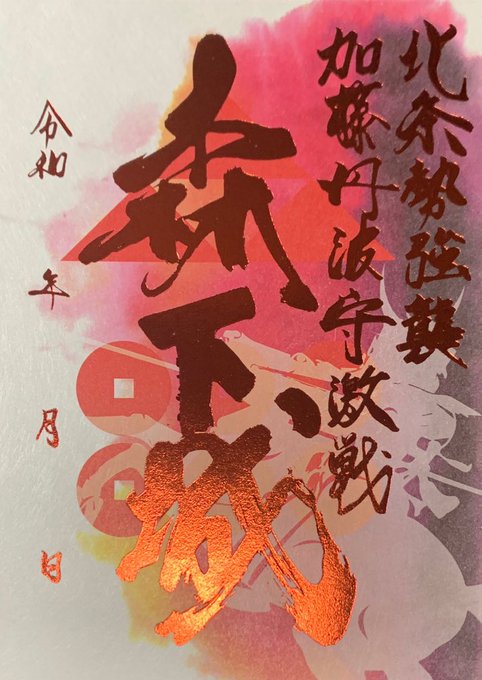 北条勢強襲
加藤丹波守激戦
森下城
令和 年 月 日